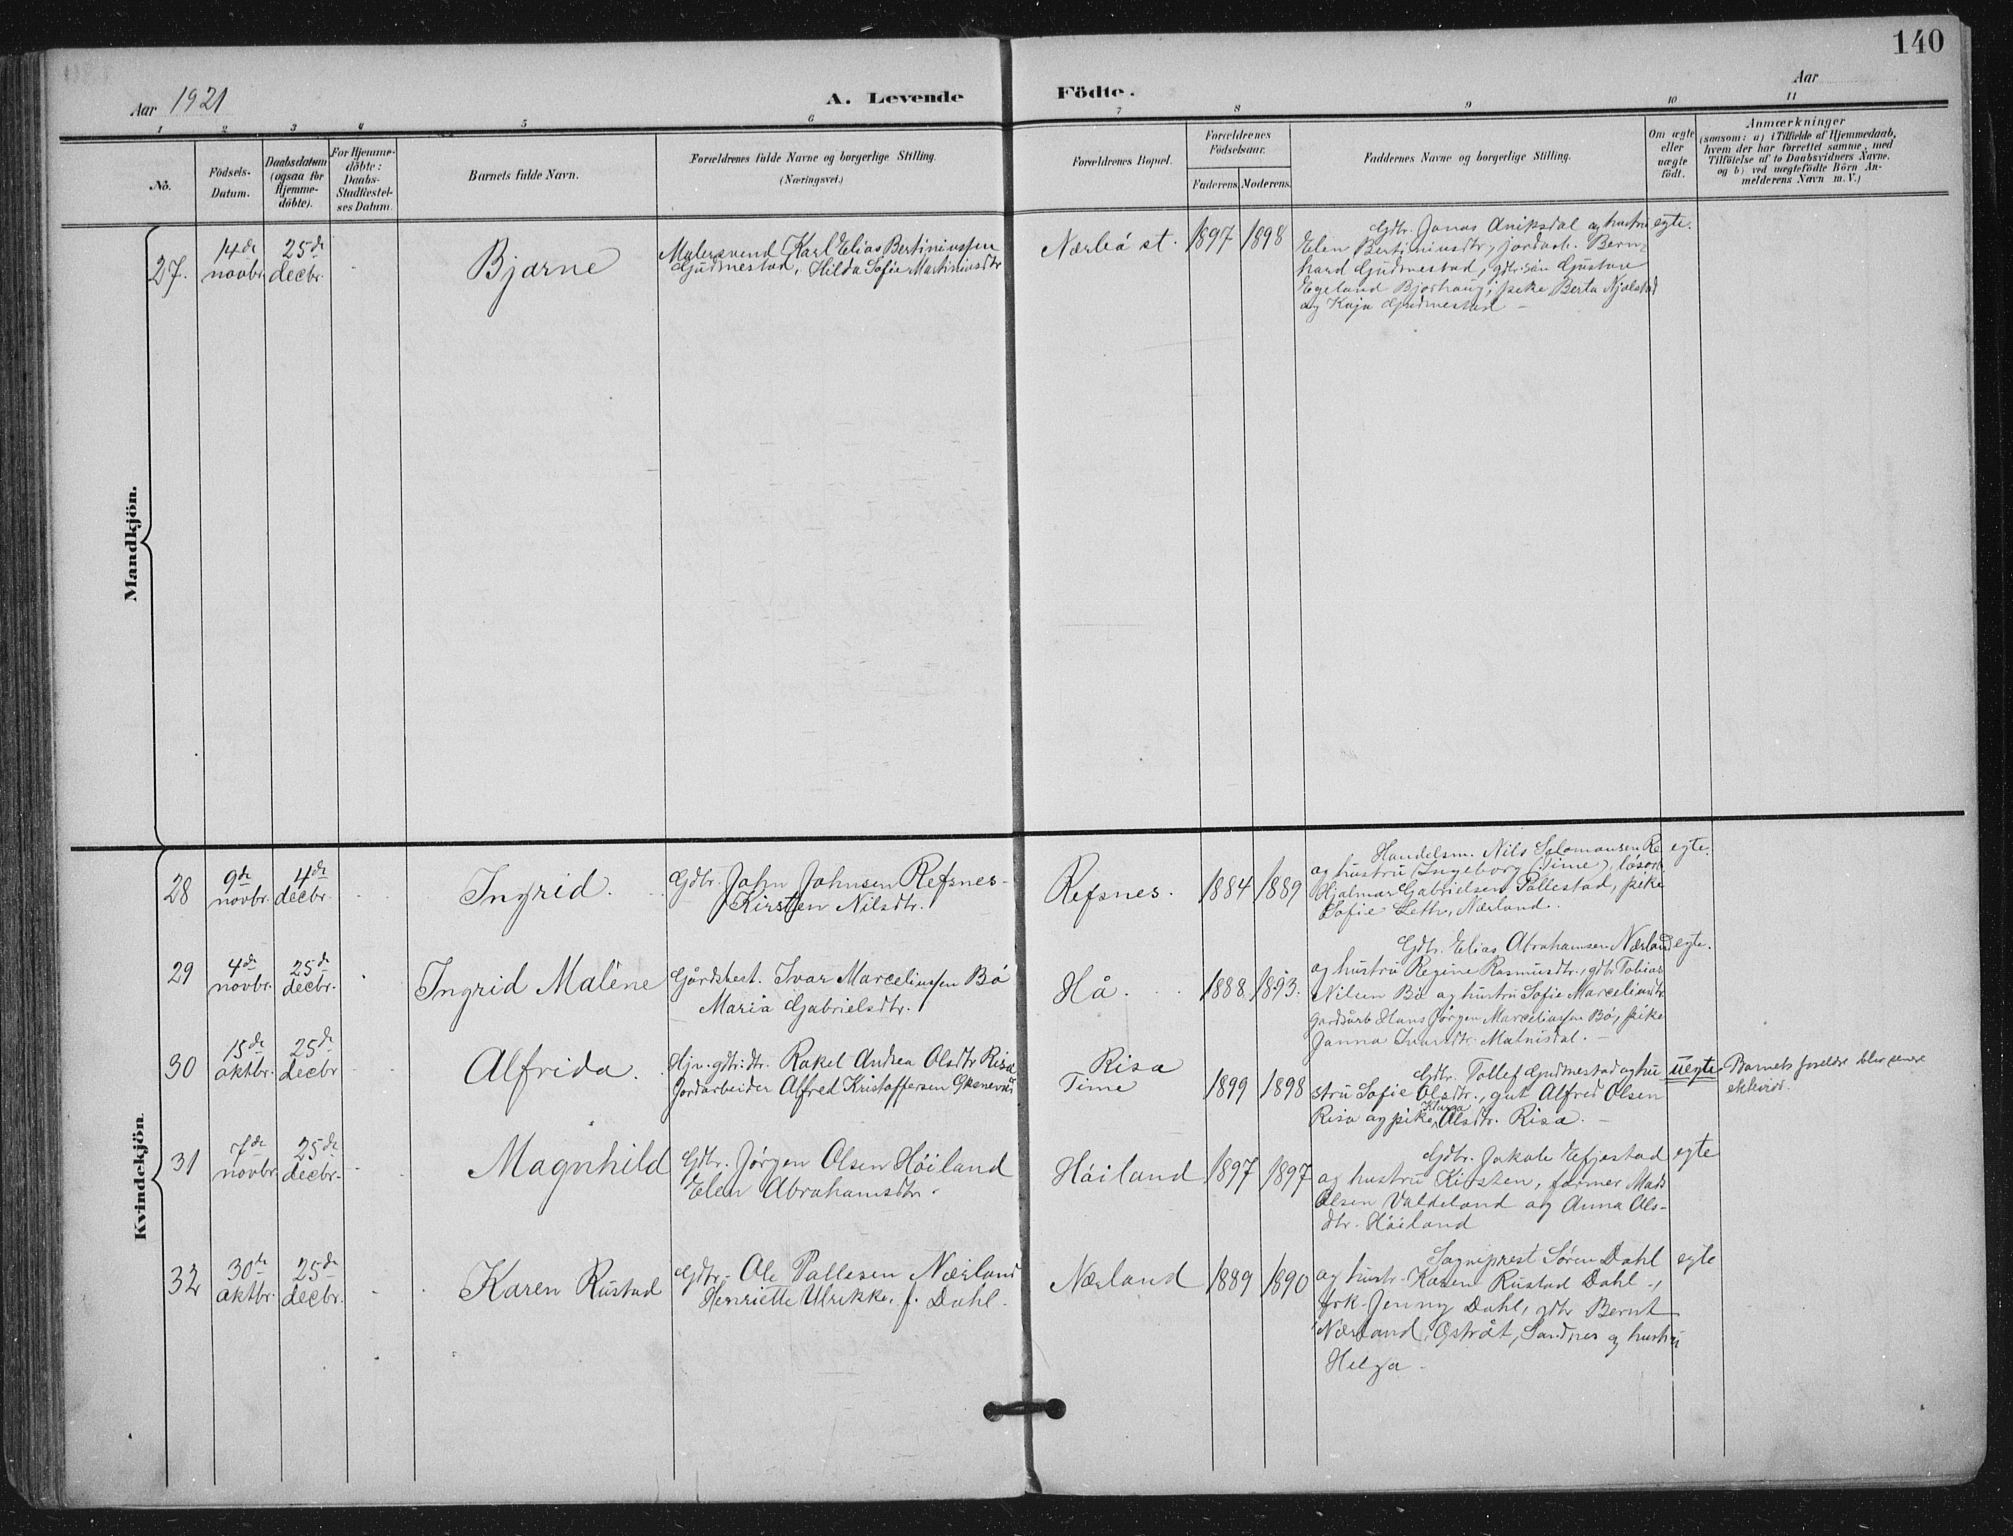 140
Aar 1921
A. Levende Födte.
Aar
1 2 3 4 5 6 7 8 9 10 11
No.
Födsels-
Datum.
Daabsdatum
(ogsaa for
Hjemme-
döbte).
For Hjemme-
döbte:
Daabs-
Stadfæstel-
ses Datum.
Barnets fulde Navn.
Forældrenes fulde Navne og borgerlige Stilling.
(Næringsvei.)
Forældrenes Bopæl.
Forældrenes
Födselsaar.
Faderens. Moderens.
Faddernes Navne og borgerlige Stilling.
Om ægte
eller
uægte
födt.
Anmærkninger
(saasom: a) i Tilfælde af Hjemmedaab,
hvem der har forrettet samme, med
Tilföielse af to Daabsvidners Navne.
og b) ved uægtefödte Börn An-
melderens Navn m. V.)
Mandkjön.
27.
14de
novbr.
25de
decbr.
Bjarne
Malersvend Karl Elias Bertiniussen
Gudmestad, Hilda Sofie Martiniusdtr
Nærbö st.
1897 1898
Gdbr. Jonas Aniksdal og hustru
Elen Bertiniusdtr, jordarb. Bern-
hard Gudmestad, gdbr. sön Gustave
Egeland Bjorhaug, pike Berta Njølstad
og Kaja Gudmestad –
egte.
Kvindekjön
28
9de
novbr.
4de
decbr.
Ingrid.
Gdbr. John Johnsen Refsnes-
Kirsten Nilsdtr.
Refsnes.
1884 1889
Handelsm. Nils Salomonsen Re
og hustru Ingeborg (Time), lösarb.
Hjalmar Gabrielsen Pollestad, pike
Sofie Leth, Nærland.
egte.
29
4de
novbr.
25de
decbr.
Ingrid Maléne
Gårdsbest. Ivar Marceliussen Bö
Maria Gabrielsdtr.
Hå.
1888. 1893.
Gdbr. Elias Abrahamsen Nærland
og hustru Regine Rasmusdtr., gdbr. Tobias
Nilsen Bö og hustru Sofie Marceliusdtr
gardsarb Hans Jørgen Marceliussen Bö, pike
Janna Ivarsdtr. Malmisdal. –
egte.
30
15de
oktbr.
25de
decbr
Alfrida.
Hjv. gdbr.dtr. Rakel Andrea Olsdtr Risa
Jordarbeider Alfred Kristoffersen Oksnevad
Risa
Time
1899 1898
Gdbr. Tollef Gudmestad og hu
stru Sofie Olsdtr., gut Alfred Olsen
Risa og pike Klara Olsdtr. Risa. –
uegte
Barnets foreldre blev senere
ektevid.
31
7de
novbr.
25de
decbr.
Magnhild
Gdbr. Jørgen Olsen Höiland
Elen Abrahamsdtr.
Höiland
1897 1897
Gdbr. Jakob Efjestad
og hustru Kirsten, farmer Mads
Olsen Valdeland og Anna Ols-
dtr. Höiland
egte
32
30te
oktbr.
25de
decbr.
Karen Rustad
Gdbr. Ole Pallesen Nærland
Henriette Ulrikke, f. Dahl.
Nærland
1889 1890
Sogneprest Sören Dahl
og hustr. Karen Rustad Dahl.,
frk. Jenny Dahl, gdbr Bernt
Nærland, Østråt, Sandnes og hustru
Helga.
egte